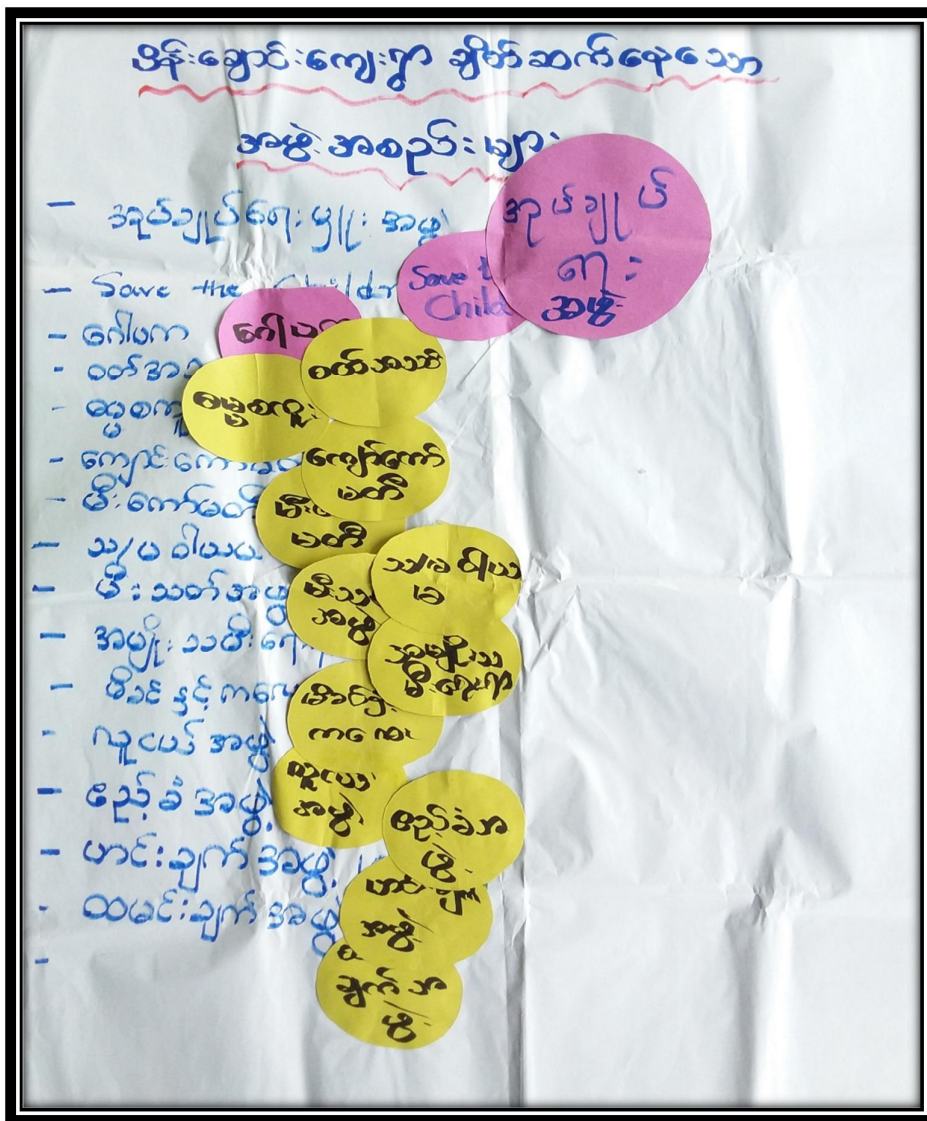 ပိန်းချောင်းကျေးရွာ ချိတ်ဆက်နေသော
အဖွဲ့အစည်းများ
- အုပ်ချုပ်ရေးမှူးအဖွဲ့
- Save the Childr
- ဂေါပက
- ဝတ်အသ
- ဓမ္မစကူ
- ကျောင်းကော်မ
- မီးကော်မတီ
- သ/မ ဝါယမ
- မီးသတ်အဖွဲ့
- အမျိုးသမီးရေး
- မိခင်နှင့်ကလေ
- လူငယ်အဖွဲ့
- ဧည့်ခံအဖွဲ့
- ဟင်းချက်အဖွဲ့
- ထမင်းချက်အဖွဲ့
-
အုပ်ချုပ်
ရေး
အဖွဲ့
Save t
Child
ဂေါပက
ဝတ်အသင်း
ဓမ္မစကူး
ကျော်ကော်
မတီ
မီး
မတီ
သ/မ ဝါယ
မ
မီးသ
အဖွဲ့
အမျိုးသ
မီးရေးရာ
မိခင်နှင့်
ကလေး
လူငယ်
အဖွဲ့
ဧည့်ခံအ
ဖွဲ့
ဟင်းချက်
အဖွဲ့
ချက်အ
ဖွဲ့